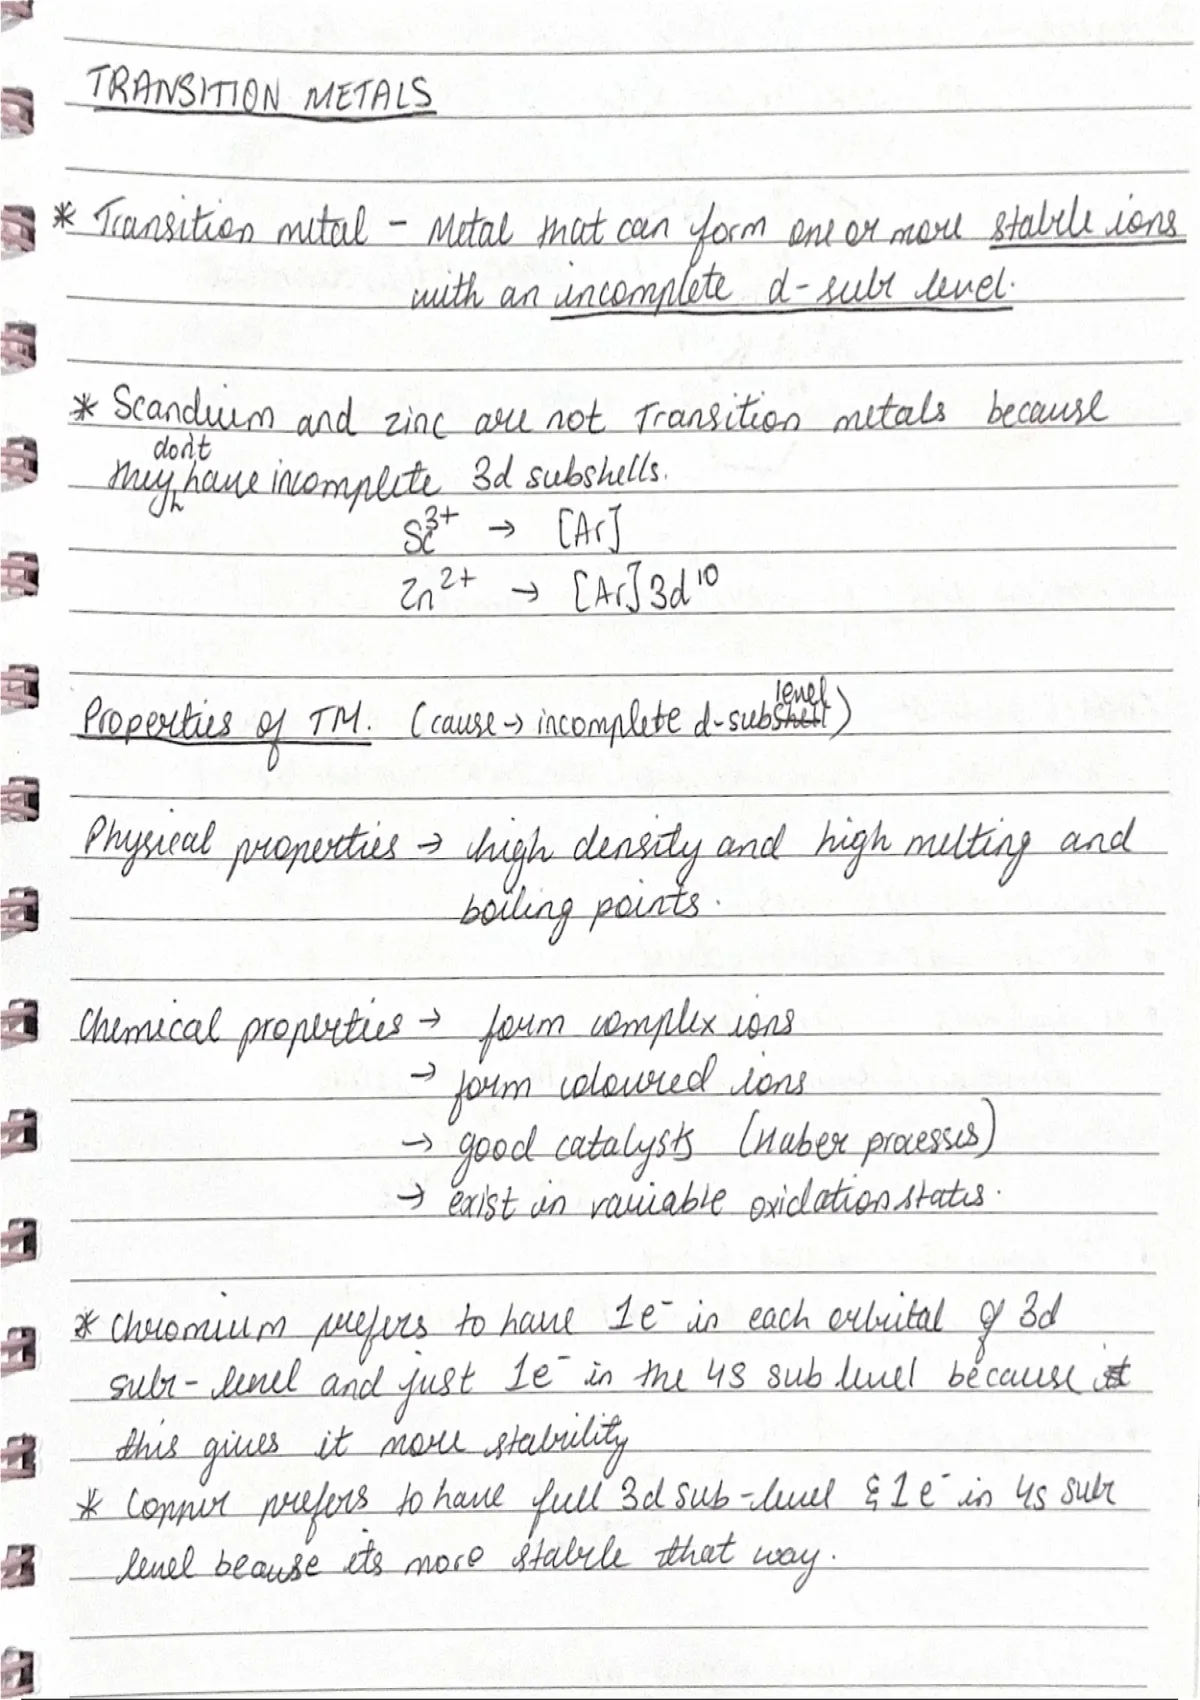 TRANSITION METALS
* Transition metal - Metal that can form one or more stable ions
with an incomplete d-sub level.
* Scandium and zinc are not Transition metals because
don't
they have incomplete 3d subshells.
Sc³⁺ → [Ar]
Zn²⁺ → [Ar] 3d¹⁰
level
Properties of TM. (cause → incomplete d-subshell)
Physical properties → high density and high melting and
boiling points.
Chemical properties → form complex ions
→ form coloured ions
→ good catalysts (Haber processes)
→ exist in variable oxidation states.
* Chromium prefers to have 1e⁻ in each orbital of 3d
sub-level and just 1e⁻ in the 4s sub level because it
this gives it more stability
* Copper prefers to have full 3d sub-level & 1e⁻ in 4s sub
level beause its more stable that way.